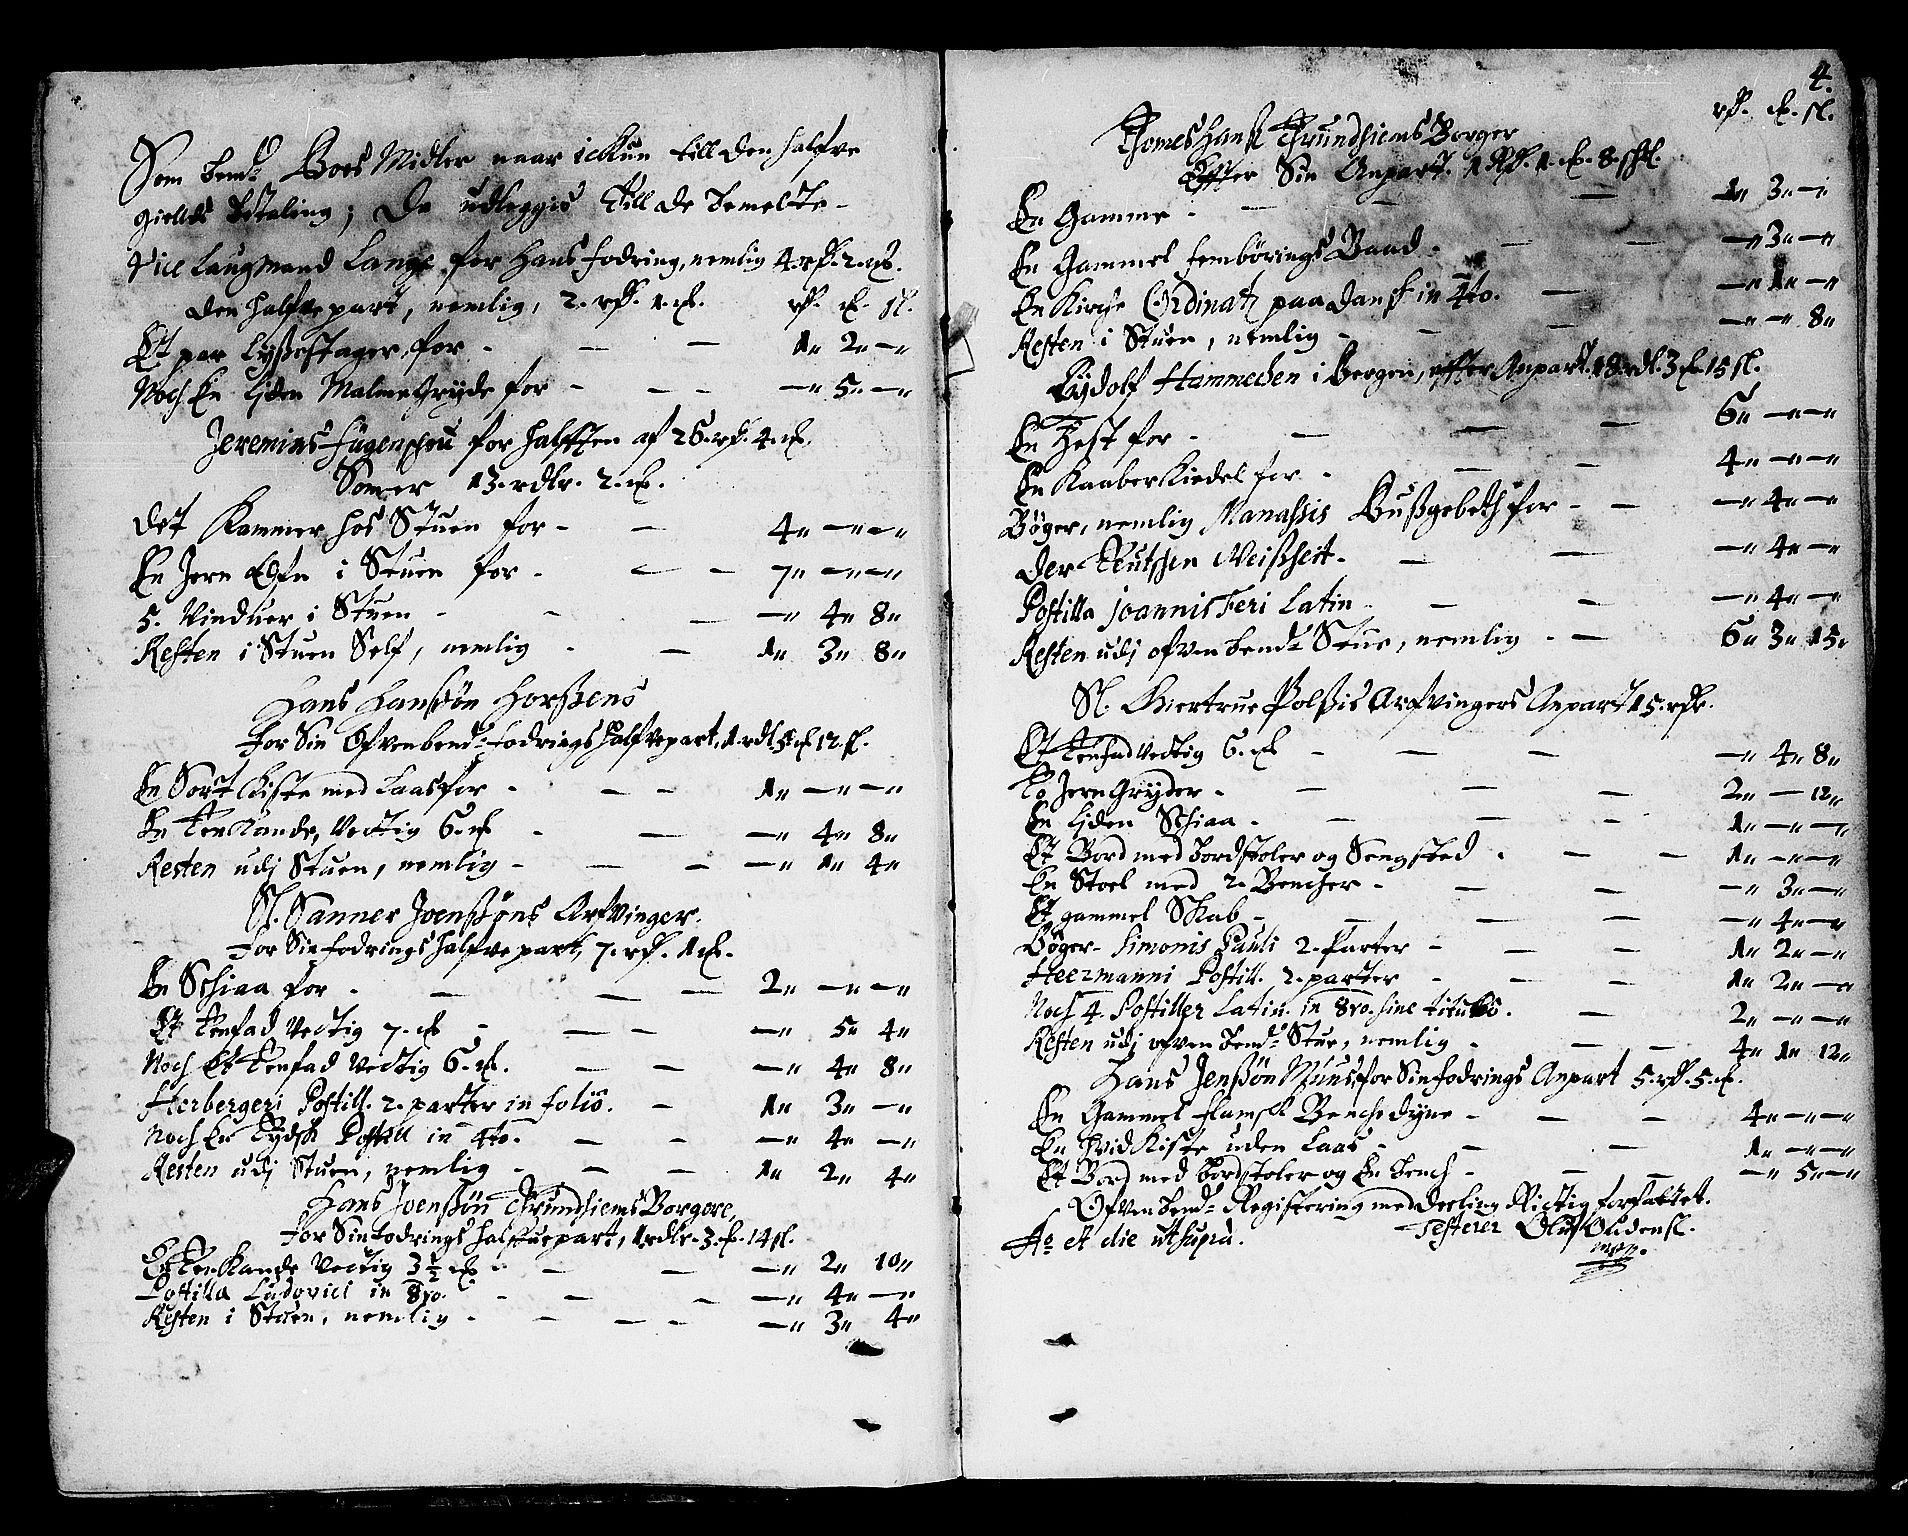 Som bemte Boes Midler naar ickun till den halfve
gields betaling; Da udleggis till de bemelte
Vice Laugmand Lange for hans fodring, nemlig 4. rd. 2. mk.
den halfve part, nemlig, 2. rd. 1. mk. rd. mk. sl.
Et par Lyssestager for - — — 1" 2" —"
Noch En liden Malmegryde for - — — —" 5" —"
Jeremias Fugenschou for halfften af 26. rd. 4. mk.
Som er 13. rdlr. 2. mk.
Det Kammer hos Stuen for - — 4" —" —"
En Jern Ofn i Stuen for - — — 7" —" —"
5. Vinduer i Stuen - - — —" 4" 8"
Resten i Stuen Self, nemlig - — 1" 3" 8"
Hans Hanssøn Horssens
For Sin Ofvenbemte fodrings halfvepart, 1. rdl 5 mk 12. sl.
En Sort Kiste med Laas for - — — 1" —" —"
En Ten Kande, Vectig 6. mk - — —" 4" 8"
Resten udj Stuen, nemlig - — — —" 1" 4"
Sl. Sanner Joenssøns Arfvinger.
For Sin fodrings halfve part, 7. rd. 1 mk.
En Schiaa for - — — — 2" —" —"
Et Tenfad Vectig 7. mk - — — —" 5" 4"
Noch Et Tenfad Vectig 6. mk. — — —" 4" 8"
Herbergeri Postill. 2. parter in folio. — 1" 3" —"
Noch En Tydsk Postill in 4to. — — —" 4" —"
Resten udj Stuen, nemlig - — — 1" 2" 4"
Hans Joenssøn Trundhiems Borgere,
For Sin Fodrings halffuepart, 1 rdlr. 3. mk. 14 sl.
En Ten Kande Vectig 3 1/2 mk - — — —" 2" 10"
Postilla Ludovici in 8vo. - — — —" 4" —"
Resten i Stuen, nemlig - — — — —" 3" 4"
4.
rd. mk. sl.
Thomes Hanss. Trundhiems Borger
Effter Sin Anpart. 1 Rd. 1. mk. 8. sk.
En Gamme - — — — 1" 3" —"
En Gammel fembørings Baad - — — —" 3" —"
En Kirche Ordinatz paa Dansk in 4to. — —" 1" —"
Resten i Stuen, nemlig - — — —" —" 8"
Lydolf Hammechen i Bergen, effter Anpart. 18. rdl. 3 mk. 15 sl.
En Hest for - — — — 6" —" —"
En Kaaber Kiedel for - — — 4" —" —"
Bøger, nemlig Manassis Bussgebeth for - — —" 4" —"
Der Teutschen Weissheit - — — —" 4" —"
Postilla Joannis Feri Latin - — — —" 4" —"
Resten udj ofvenbemte Stue, nemlig - — 6" 3" 15"
Sl. Giertrue Polssis Arfvingers Anpart 15. rdr.
Et Tenfad Vectig 6. mk - — — — —" 4" 8"
To Jern Gryder - — — — 2" — 12"
En liden Schiaa - — — — 1" —" —"
Et Bord med bordstoler og Sengsted - — — 1" —" —"
En Stoel med 2. Bencher - — — —" 3" —"
Et gammel Skab - — — — —" 4" —"
Bøger - Simonis Pauli 2. Parter - — — 1" 2" —"
Heermanni Postill. 2. parter - — — 1" 2" —"
Noch 4. Postiller Latin. in 8vo. sine titulo. — 2" —" —"
Resten udj ofvenbemte Stue, nemlig - — — 4" 1" 12"
Hans Jenssøn Nuns for Sin fodrings Anpart 5. rd. 5. mk.
En Gammel flamsk Benchedyne - — — 4" —" —"
En hvid Kiste uden Laas - — — 1" —" —"
Et Bord med bordstoler og En bench - — — —" 5" —"
Ofvenbemte Registering med deeling Rictig forfattet.
Ao et die ut supra. Testerer Oluf Oudensl.
mpp.